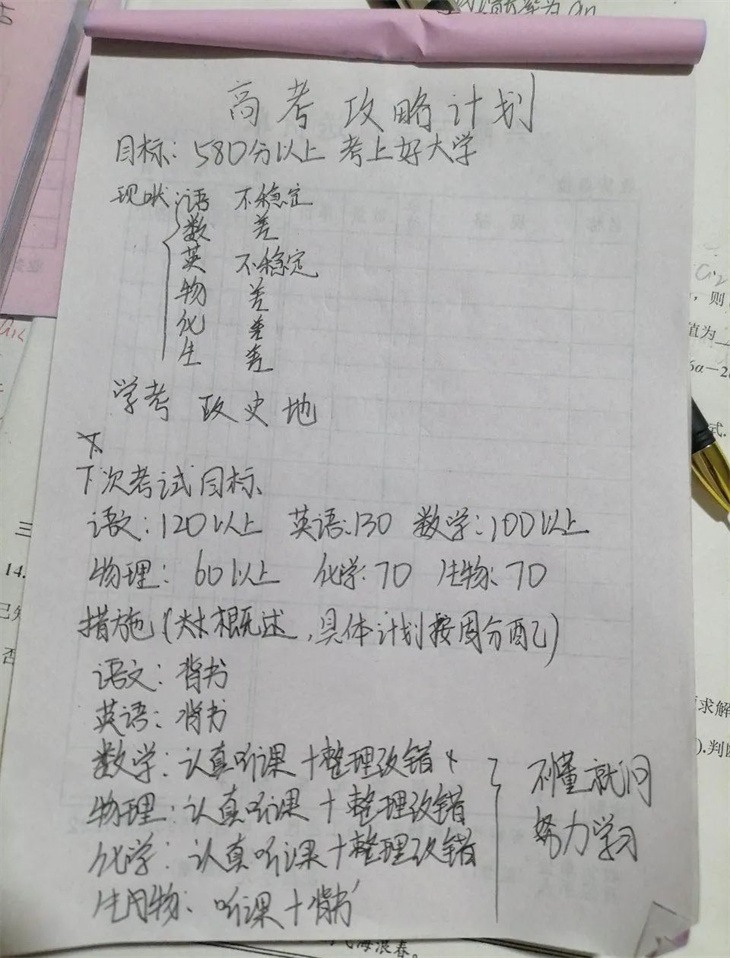 高考攻略计划
目标：580分以上 考上好大学
现状：语 不稳定
数 差
英 不稳定
物 差
化 差
生 差
学考 政史地
下次考试目标
语文：120以上 英语：130 数学：100以上
物理：60以上 化学：70 生物：70
措施（大概述，具体计划按周分配）
语文：背书
英语：背书
数学：认真听课+整理改错
物理：认真听课+整理改错
化学：认真听课+整理改错
生物：听课+背书
不懂就问
努力学习
三
14.
否
，则
值为
6a-2
式.
求解
).判断